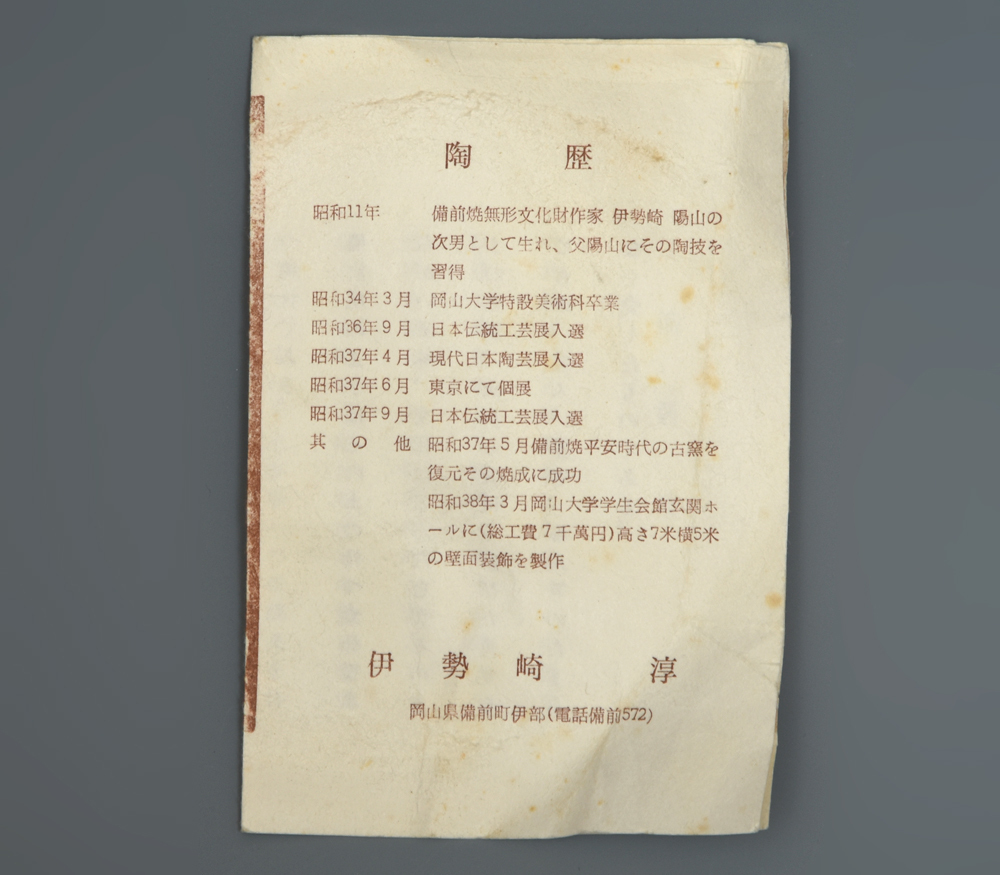 陶歴
昭和11年 備前焼無形文化財作家 伊勢崎 陽山の
次男として生れ、父陽山にその陶技を
習得
昭和34年3月 岡山大学特設美術科卒業
昭和36年9月 日本伝統工芸展入選
昭和37年4月 現代日本陶芸展入選
昭和37年6月 東京にて個展
昭和37年9月 日本伝統工芸展入選
其の他 昭和37年5月備前焼平安時代の古窯を
復元その焼成に成功
昭和38年3月岡山大学学生会館玄関ホ
ールに(総工費7千萬円)高さ7米横5米
の壁面装飾を製作
伊勢崎 淳
岡山県備前町伊部(電話備前572)